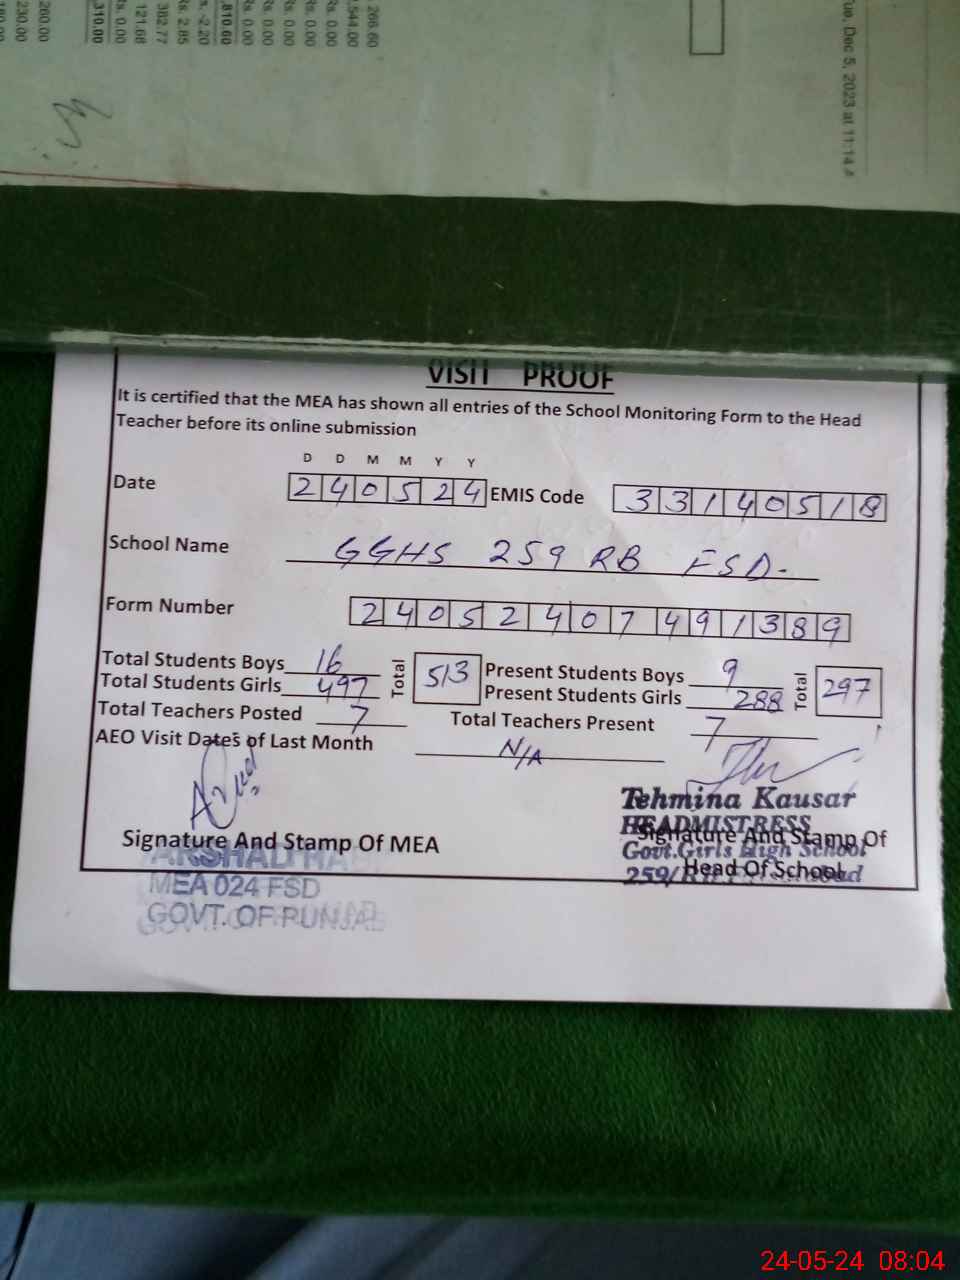 266.60
,544.00
Rs. 0.00
Rs. 0.00
Rs. 0.00
Rs. 0.00
Rs. 0.00
,810.60
s. -2.20
Rs 2.85
382.77
121.68
Rs. 0.00
,310.00
260.00
230.00
Tue, Dec 5, 2023 at 11:14 A
VISIT PROOF
It is certified that the MEA has shown all entries of the School Monitoring Form to the Head
Teacher before its online submission
D D M M Y Y
Date 240524 EMIS Code 33140518
School Name GGHS 259 RB FSD.
Form Number 24052407491389
Total Students Boys 16 Total 513 Present Students Boys 9 Total 297
Total Students Girls 497 Present Students Girls 288
Total Teachers Posted 7 Total Teachers Present 7
AEO Visit Dates of Last Month N/A
Tehmina Kausar
HEADMISTRESS
Signature And Stamp Of MEA Signature And Stamp Of
Govt.Girls High School
Head Of School
259/
MEA 024 FSD
GOVT. OF PUNJAB
24-05-24 08:04